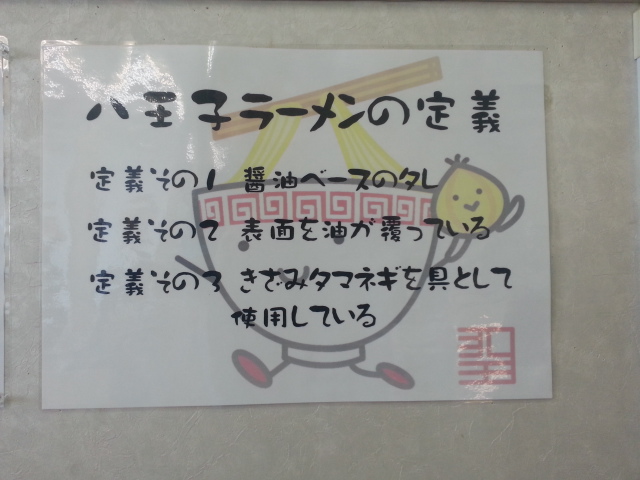 八王子ラーメンの定義
定義その1 醤油ベースのタレ
定義その2 表面を油が覆っている
定義その3 きざみタマネギを具として
使用している